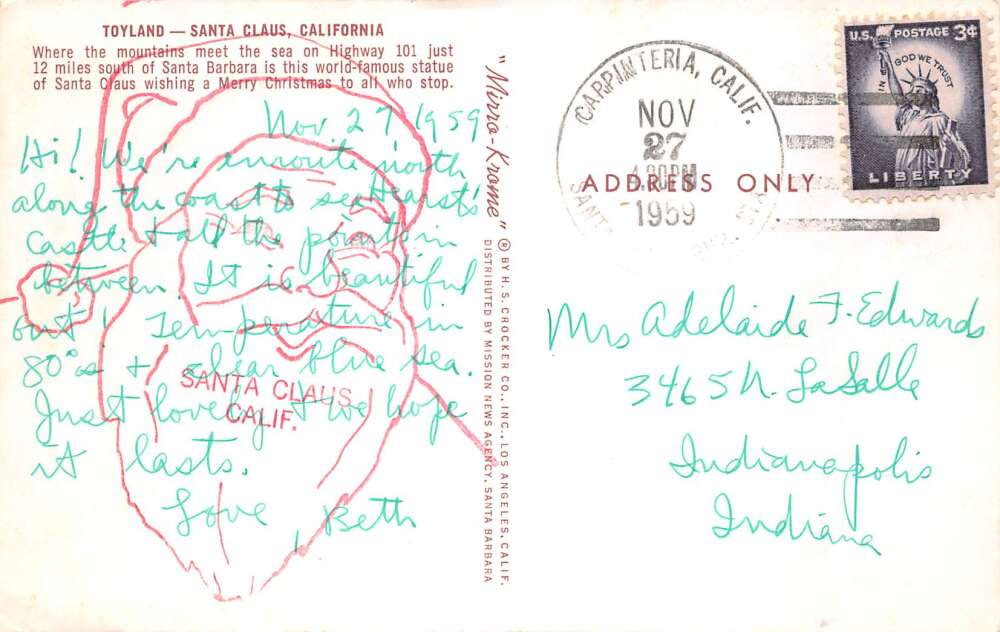 TOYLAND — SANTA CLAUS, CALIFORNIA
Where the mountains meet the sea on Highway 101 just
12 miles south of Santa Barbara is this world-famous statue
of Santa Claus wishing a Merry Christmas to all who stop.
Nov. 27 1959
Hi! We're enroute north
along the coast to see Hearst's
Castle & all the points in
between. It is beautiful
out! Temperature in
80°s & clear blue sea.
Just lovely & we hope
it lasts.
Love, Beth
SANTA CLAUS
CALIF.
"Mirro-Krome" ® BY H. S. CROCKER CO., INC., LOS ANGELES, CALIF.
DISTRIBUTED BY MISSION NEWS AGENCY, SANTA BARBARA
CARPINTERIA, CALIF.
NOV
27
4:30PM
1959
SANTA
U.S. POSTAGE 3¢
IN GOD WE TRUST
LIBERTY
ADDRESS ONLY
Mrs Adelaide F. Edwards
3465 N. LaSalle
Indianapolis
Indiana